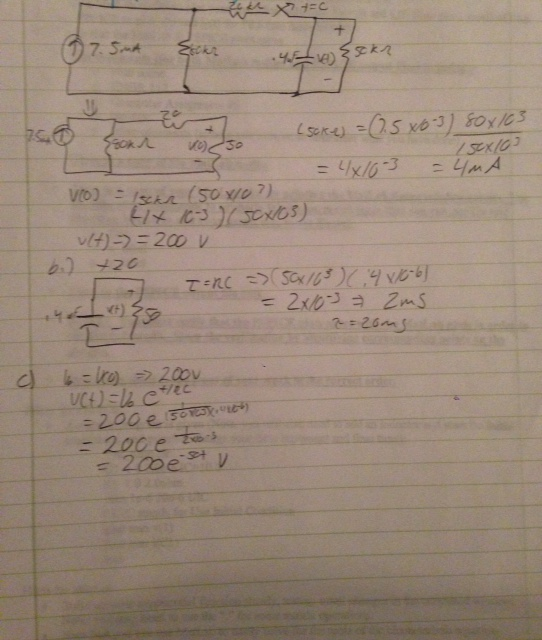 20kΩ t=0
7.5mA 80kΩ .4μF v(t) 50kΩ + -
⇓
20
7.5mA 80kΩ v(0) 50 + -
i50kΩ = (7.5 x10^-3) 80x10^3 / 150x10^3
= 4x10^-3 = 4mA
V(0) = i50kΩ (50x10^3)
(4x10^-3)(50x10^3)
V(t) => = 200 V
b.) t≥0
.4μF v(t) 50 + -
τ=RC => (50x10^3)(.4x10^-6)
= 2x10^-3 => 2ms
τ=20ms
c) V0 = V(0) => 200V
V(t) = V0 e^t/RC
= 200 e^1/(50x10^3)(.4x10^-6)
= 200 e^1/2x10^-3
= 200e^-50t V